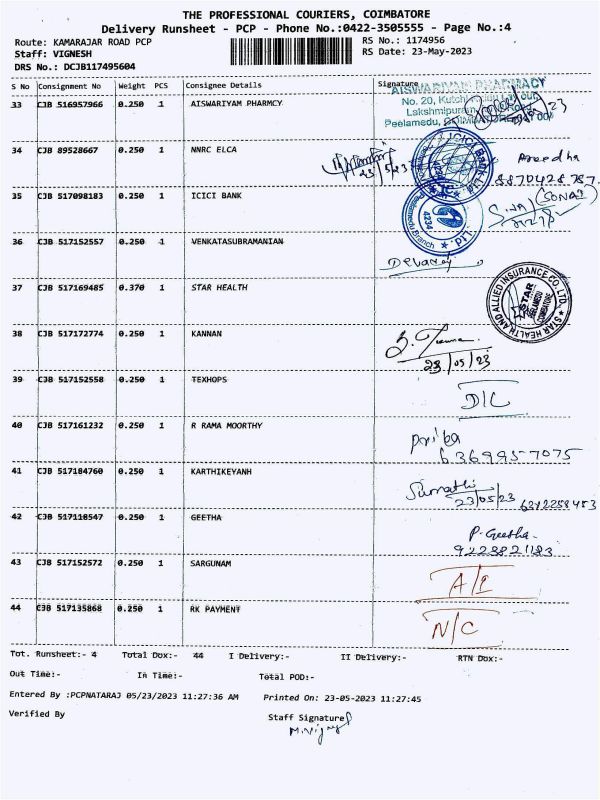 THE PROFESSIONAL COURIERS, COIMBATORE
Delivery Runsheet - PCP - Phone No.:0422-3505555 - Page No.:4
Route: KAMARAJAR ROAD PCP RS No.: 1174956
Staff: VIGNESH RS Date: 23-May-2023
DRS No.: DCJB117495604
S No Consignment No Weight PCS Consignee Details Signature
AISWARIYAM PHARMACY
33 CJB 516957966 0.250 1 AISWARIYAM PHARMCY
No. 20,
Lakshmipuram
Peelamedu,
34 CJB 89528667 0.250 1 NNRC ELCA
23/5/23
ICICI Bank Ltd
4234
8870428787
35 CJB 517098183 0.250 1 ICICI BANK
Peelamedu Branch
4234
Siva (SONAI)
36 CJB 517152557 0.250 1 VENKATASUBRAMANIAN
Devaraj
37 CJB 517169485 0.370 1 STAR HEALTH
STAR HEALTH AND ALLIED INSURANCE CO. LTD.
STAR
PEELAMEDU
COIMBATORE
38 CJB 517172774 0.250 1 KANNAN
23/05/23
39 CJB 517152558 0.250 1 TEXHOPS
D/L
40 CJB 517161232 0.250 1 R RAMA MOORTHY
Priba
6369957075
41 CJB 517184760 0.250 1 KARTHIKEYANH
Sumathi
23/05/23 6372258453
42 CJB 517118547 0.250 1 GEETHA
P. Geetha
9223821183
43 CJB 517152572 0.250 1 SARGUNAM
A/I
44 CJB 517135868 0.250 1 RK PAYMENT
N/C
Tot. Runsheet:- 4 Total Dox:- 44 I Delivery:- II Delivery:- RTN Dox:-
Out Time:- In Time:- Total POD:-
Entered By :PCPNATARAJ 05/23/2023 11:27:36 AM Printed On: 23-05-2023 11:27:45
Verified By Staff Signature
M.Vijay